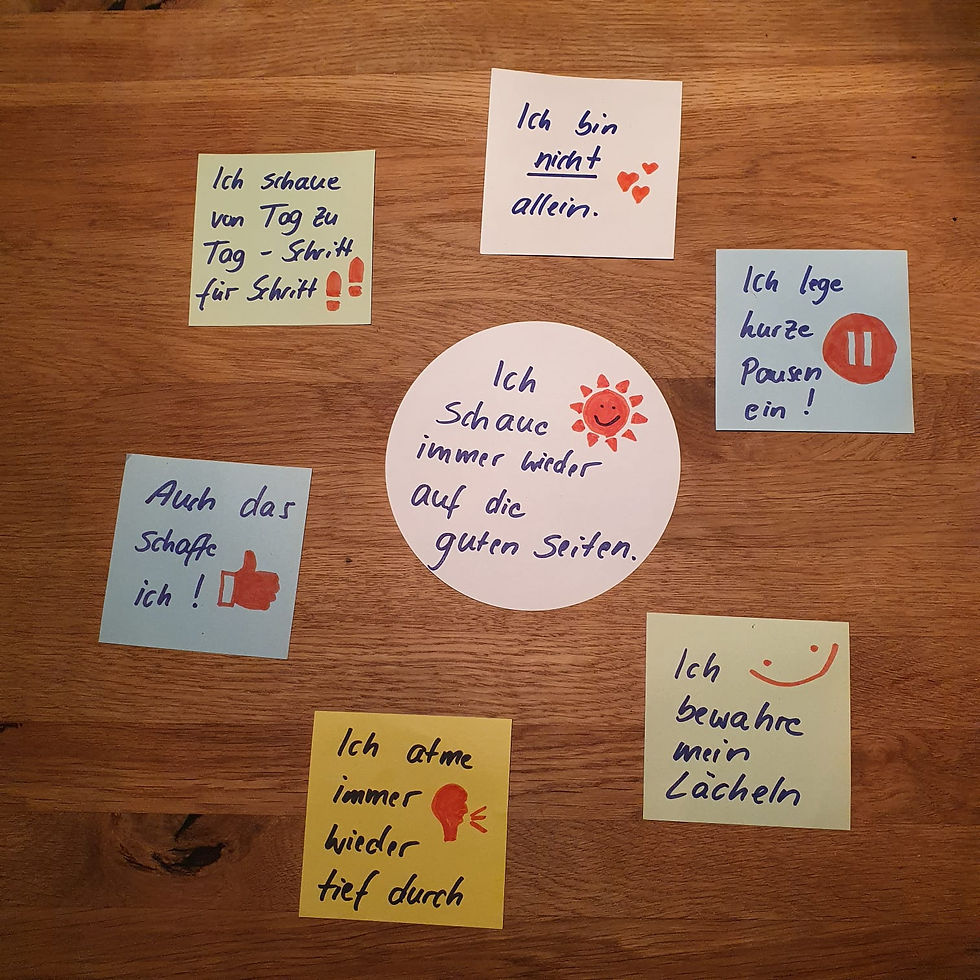 Ich bin
nicht
allein.
Ich schaue
von Tag zu
Tag - Schritt
für Schritt
Ich lege
kurze
Pausen
ein !
Ich
schaue
immer wieder
auf die
guten Seiten.
Auch das
schaffe
ich !
Ich
bewahre
mein
Lächeln
Ich atme
immer
wieder
tief durch